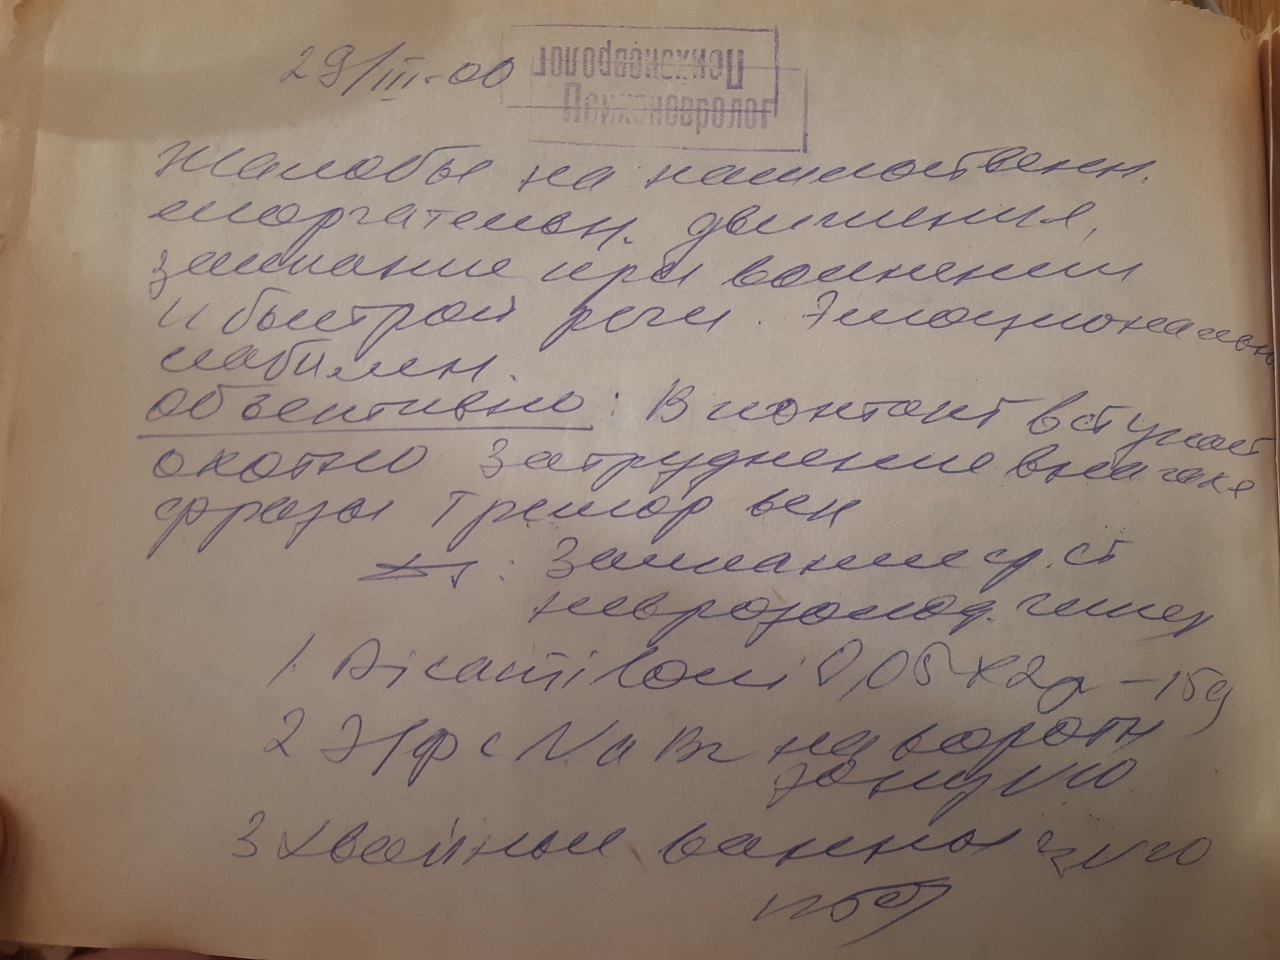 29/III-00
Психоневролог
Психоневролог
Жалобы на насильственн.
моргательн. движения,
заикание при волнении
и быстрой речи. Эмоционально
лабилен.
Объективно: В контакт вступает
охотно Затруднение вначале
фразы Тремор век
Ds: Заикание ср. ст
неврозопод.
1. Dicamiloni 0,05 x 2р - 15д
2 Э/ф с NaBr на воротн
зону N10
3 Хвойные ванны N10